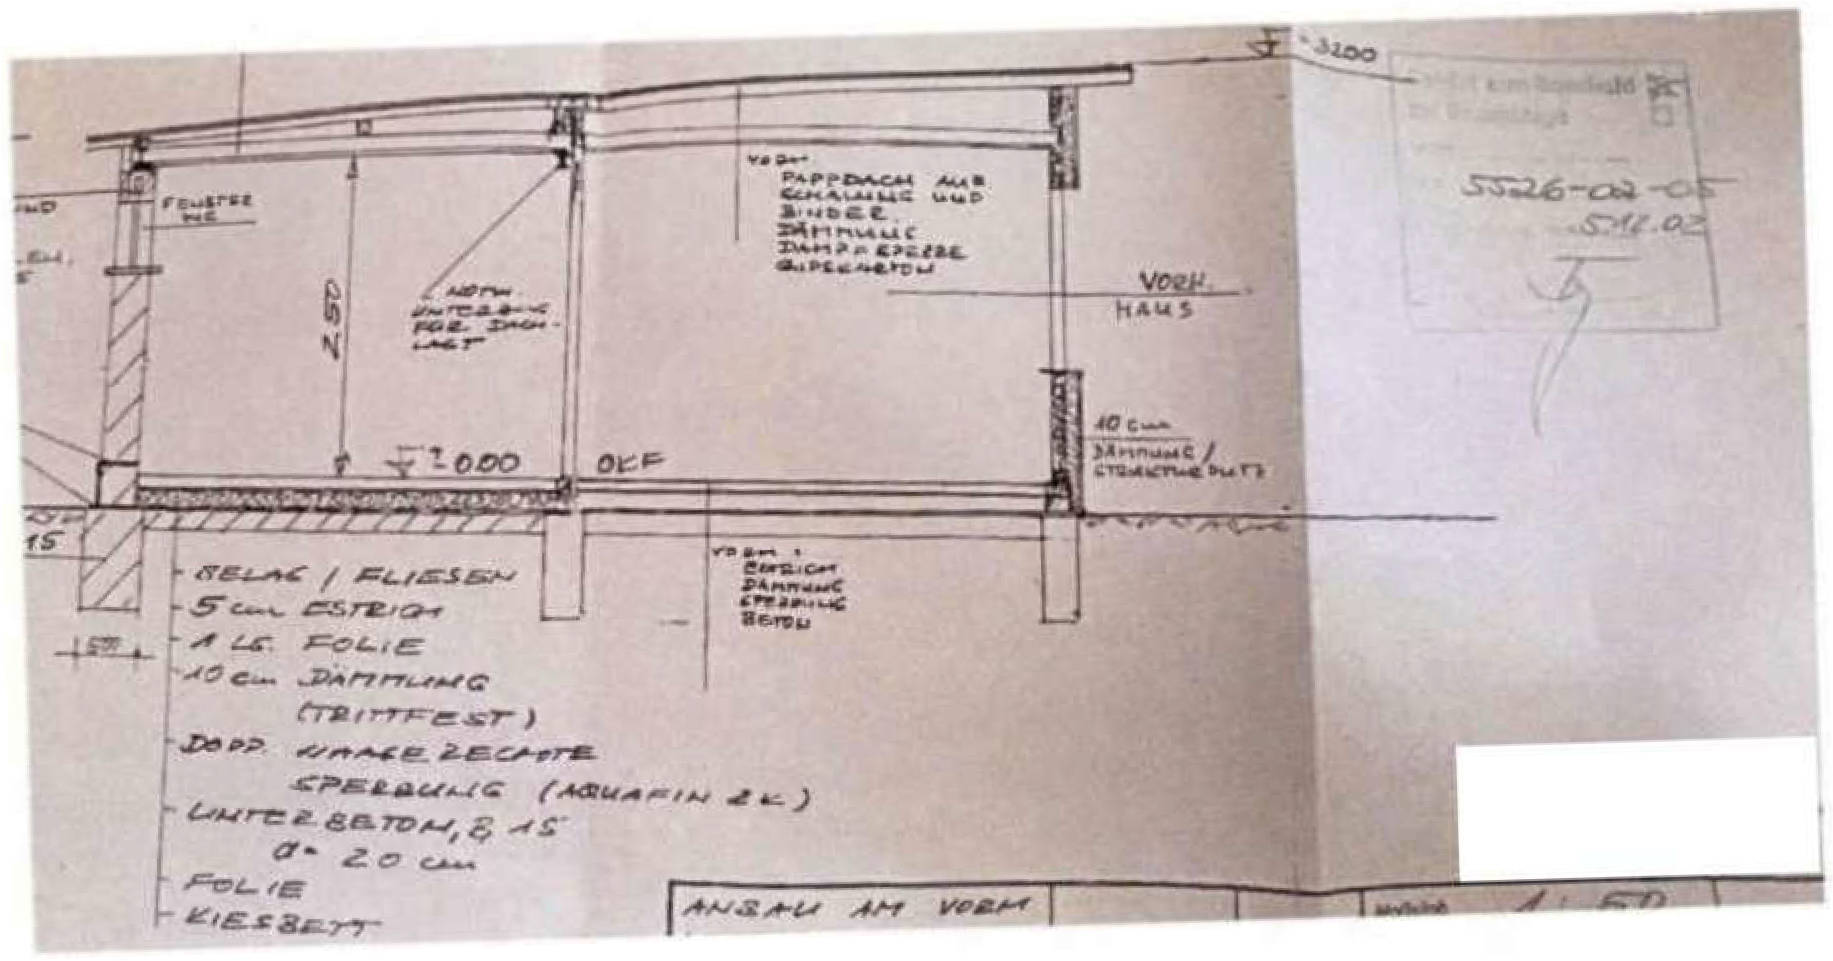 3200
5526-02-05
512.02
FENSTER
VORH.
PAPPDACH AUS
SCHALUNG UND
BINDER
DÄMMUNG
DAMPFSPERRE
GIPSKARTON
2.50
NOTW.
UNTERZUG
FÜR DACH-
LAST
VORH.
HAUS
10 cm
DÄMMUNG /
STRUKTURPUTZ
± 0.00 OKF
15
BELAG / FLIESEN
5 cm ESTRICH
1 LG. FOLIE
10 cm DÄMMUNG
(TRITTFEST)
DOPP. WAAGERECHTE
SPERRUNG (AQUAFIN 2K)
UNTERBETON, B 15
d = 20 cm
FOLIE
KIESBETT
VORH:
ESTRICH
DÄMMUNG
SPERRUNG
BETON
ANBAU AM VORH
1:50